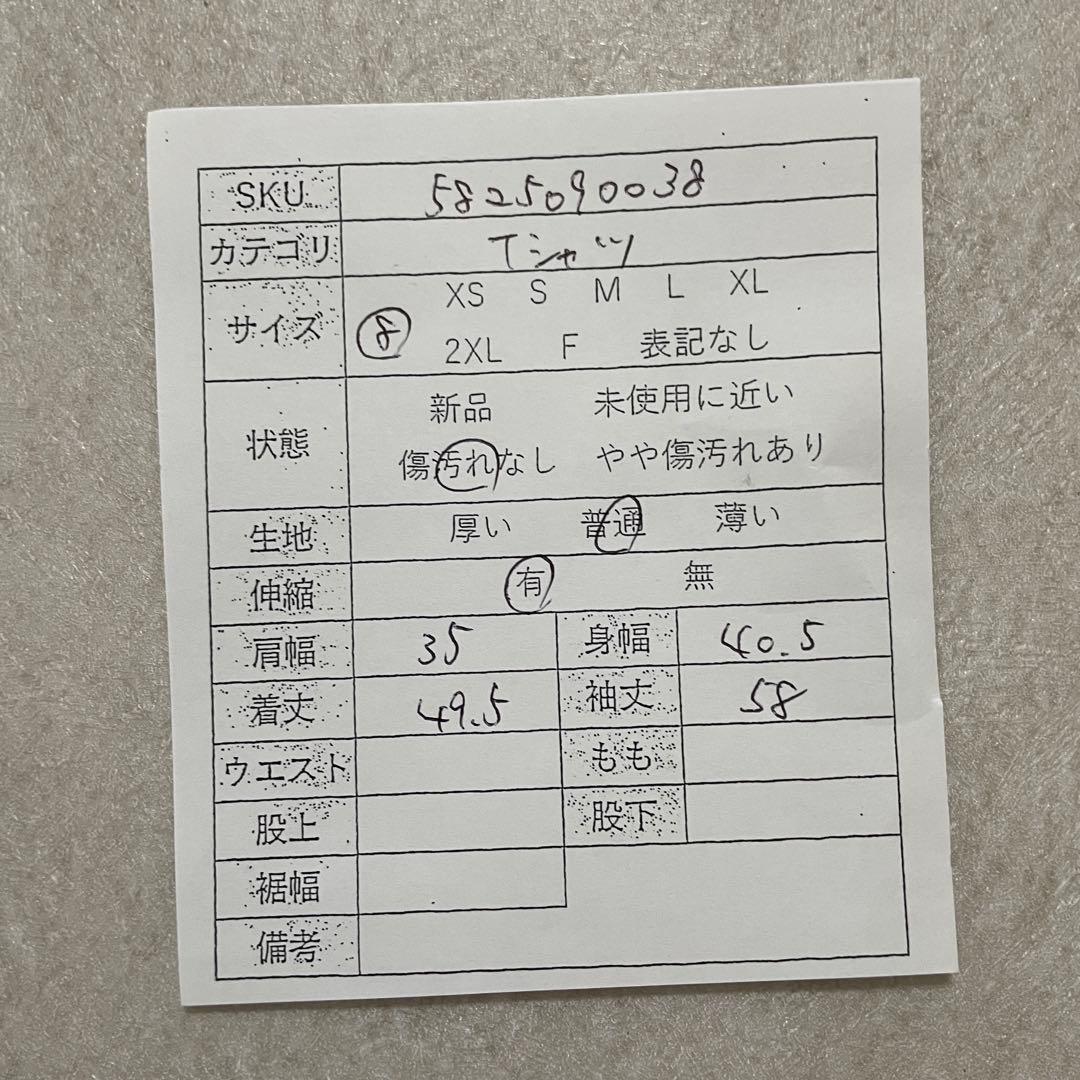 SKU 5825090038
カテゴリ Tシャツ
サイズ XS S M L XL
8 2XL F 表記なし
状態 新品 未使用に近い
傷汚れなし やや傷汚れあり
生地 厚い 普通 薄い
伸縮 有 無
肩幅 35 身幅 40.5
着丈 49.5 袖丈 58
ウエスト もも
股上 股下
裾幅
備考